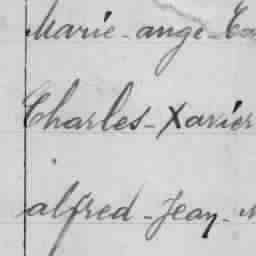 Marie-ange-
Charles-Xavier
alfred-Jean-